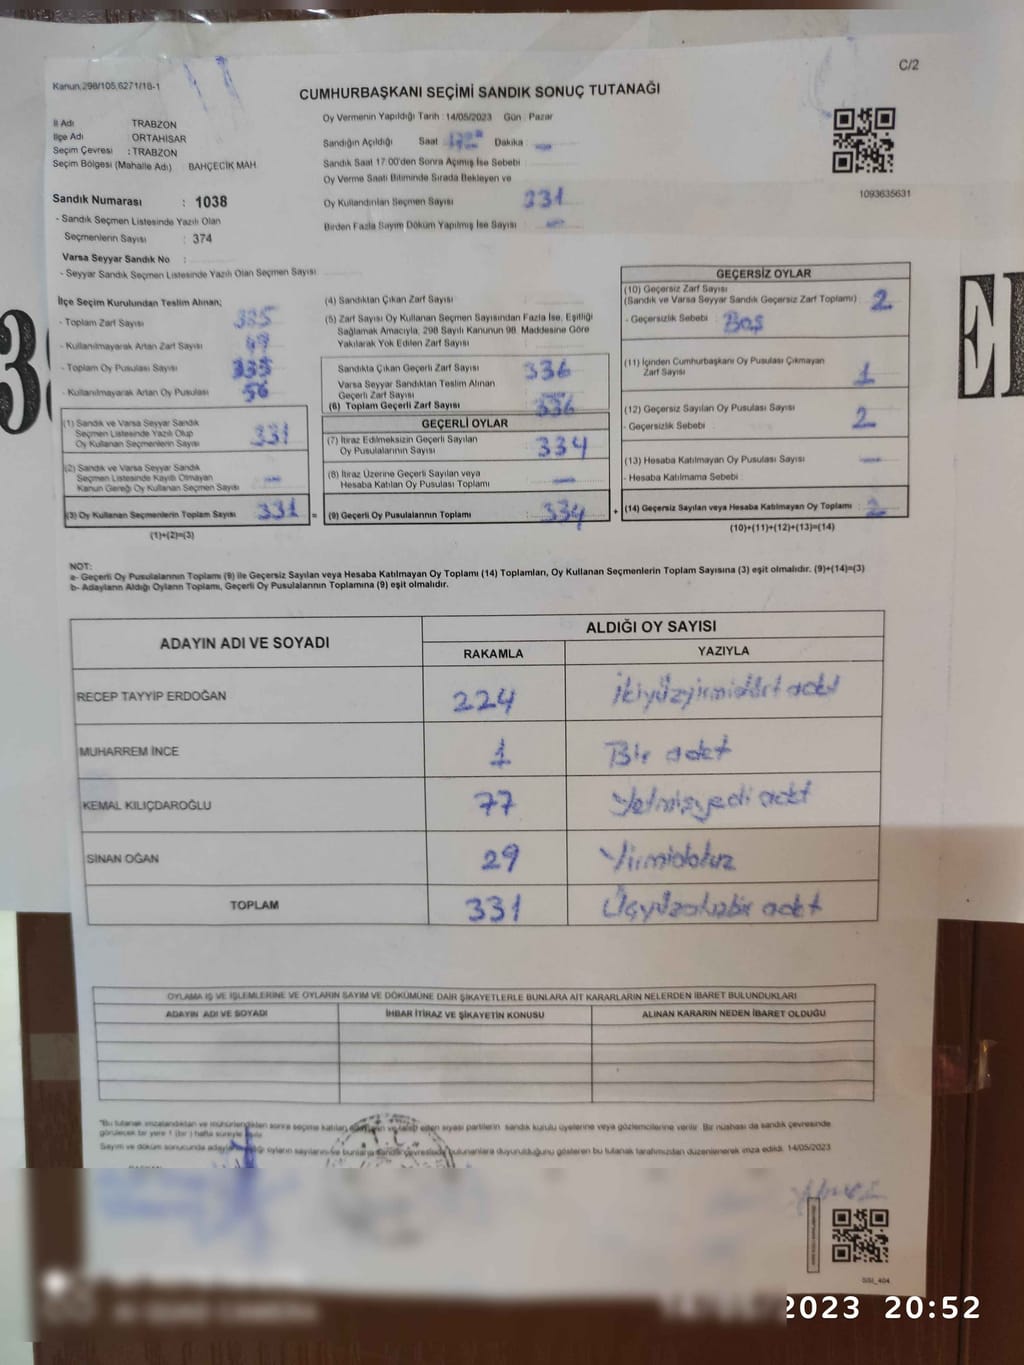 C/2
Kanun,298/105,6271/18-1
CUMHURBAŞKANI SEÇİMİ SANDIK SONUÇ TUTANAĞI
İl Adı TRABZON
İlçe Adı ORTAHİSAR
Seçim Çevresi : TRABZON
Seçim Bölgesi (Mahalle Adı) BAHÇECİK MAH.
Sandık Numarası : 1038
- Sandık Seçmen Listesinde Yazılı Olan
Seçmenlerin Sayısı : 374
Varsa Seyyar Sandık No :
- Seyyar Sandık Seçmen Listesinde Yazılı Olan Seçmen Sayısı
Oy Vermenin Yapıldığı Tarih : 14/05/2023 Gün : Pazar
Sandığın Açıldığı Saat Dakika :
Sandık Saat 17:00'den Sonra Açımış İse Sebebi
Oy Verme Saati Bitiminde Sırada Bekleyen ve
Oy Kullandırılan Seçmen Sayısı 331
Birden Fazla Sayım Döküm Yapılmış İse Sayısı : —
1093635631
İlçe Seçim Kurulundan Teslim Alınan;
- Toplam Zarf Sayısı : 385
- Kullanılmayarak Artan Zarf Sayısı : 49
- Toplam Oy Pusulası Sayısı :
- Kullanılmayarak Artan Oy Pusulası : 56
(1) Sandık ve Varsa Seyyar Sandık
Seçmen Listesinde Yazılı Olup
Oy Kullanan Seçmenlerin Sayısı : 331
(2) Sandık ve Varsa Seyyar Sandık
Seçmen Listesinde Kayıtlı Olmayan
Kanun Gereği Oy Kullanan Seçmen Sayısı : —
(3) Oy Kullanan Seçmenlerin Toplam Sayısı : 331 =
(1)+(2)=(3)
(4) Sandıktan Çıkan Zarf Sayısı
(5) Zarf Sayısı Oy Kullanan Seçmen Sayısından Fazla İse, Eşitliği
Sağlamak Amacıyla, 298 Sayılı Kanunun 98. Maddesine Göre
Yakılarak Yok Edilen Zarf Sayısı
Sandıkta Çıkan Geçerli Zarf Sayısı : 336
Varsa Seyyar Sandıktan Teslim Alınan
Geçerli Zarf Sayısı
(6) Toplam Geçerli Zarf Sayısı : 336
GEÇERLİ OYLAR
(7) İtiraz Edilmeksizin Geçerli Sayılan
Oy Pusulalarının Sayısı : 334
(8) İtiraz Üzerine Geçerli Sayılan veya
Hesaba Katılan Oy Pusulası Toplamı : —
(9) Geçerli Oy Pusulalarının Toplamı : 334 +
GEÇERSİZ OYLAR
(10) Geçersiz Zarf Sayısı
(Sandık ve Varsa Seyyar Sandık Geçersiz Zarf Toplamı) : 2
- Geçersizlik Sebebi : Boş
(11) İçinden Cumhurbaşkanı Oy Pusulası Çıkmayan
Zarf Sayısı : 1
(12) Geçersiz Sayılan Oy Pusulası Sayısı : 2
- Geçersizlik Sebebi :
(13) Hesaba Katılmayan Oy Pusulası Sayısı : —
- Hesaba Katılmama Sebebi
(14) Geçersiz Sayılan veya Hesaba Katılmayan Oy Toplamı : 2
(10)+(11)+(12)+(13)=(14)
NOT:
a- Geçerli Oy Pusulalarının Toplamı (9) ile Geçersiz Sayılan veya Hesaba Katılmayan Oy Toplamı (14) Toplamları, Oy Kullanan Seçmenlerin Toplam Sayısına (3) eşit olmalıdır. (9)+(14)=(3)
b- Adayların Aldığı Oyların Toplamı, Geçerli Oy Pusulalarının Toplamına (9) eşit olmalıdır.
ADAYIN ADI VE SOYADI ALDIĞI OY SAYISI
RAKAMLA YAZIYLA
RECEP TAYYİP ERDOĞAN 224 İkiyüzyirmidört adet
MUHARREM İNCE 1 Bir adet
KEMAL KILIÇDAROĞLU 77 Yetmişyedi adet
SİNAN OĞAN 29 Yirmidokuz
TOPLAM 331 Üçyüzotuzbir adet
OYLAMA İŞ VE İŞLEMLERİNE VE OYLARIN SAYIM VE DÖKÜMÜNE DAİR ŞİKAYETLERLE BUNLARA AİT KARARLARIN NELERDEN İBARET BULUNDUKLARI
ADAYIN ADI VE SOYADI İHBAR İTİRAZ VE ŞİKAYETİN KONUSU ALINAN KARARIN NEDEN İBARET OLDUĞU
"Bu tutanak imzalandıktan ve mühürlendikten sonra seçime katılan siyasi partilerin sandık kurulu üyelerine veya gözlemcilerine verilir. Bir nüshası da sandık çevresinde
görülecek bir yere 1 (bir) hafta süreyle
Sayım ve döküm sonucunda oyların sayılarını ve bunların bulunanlara duyurulduğunu gösteren bu tutanak tarafımızdan düzenlenerek imza edildi. 14/05/2023
SSI_404
2023 20:52